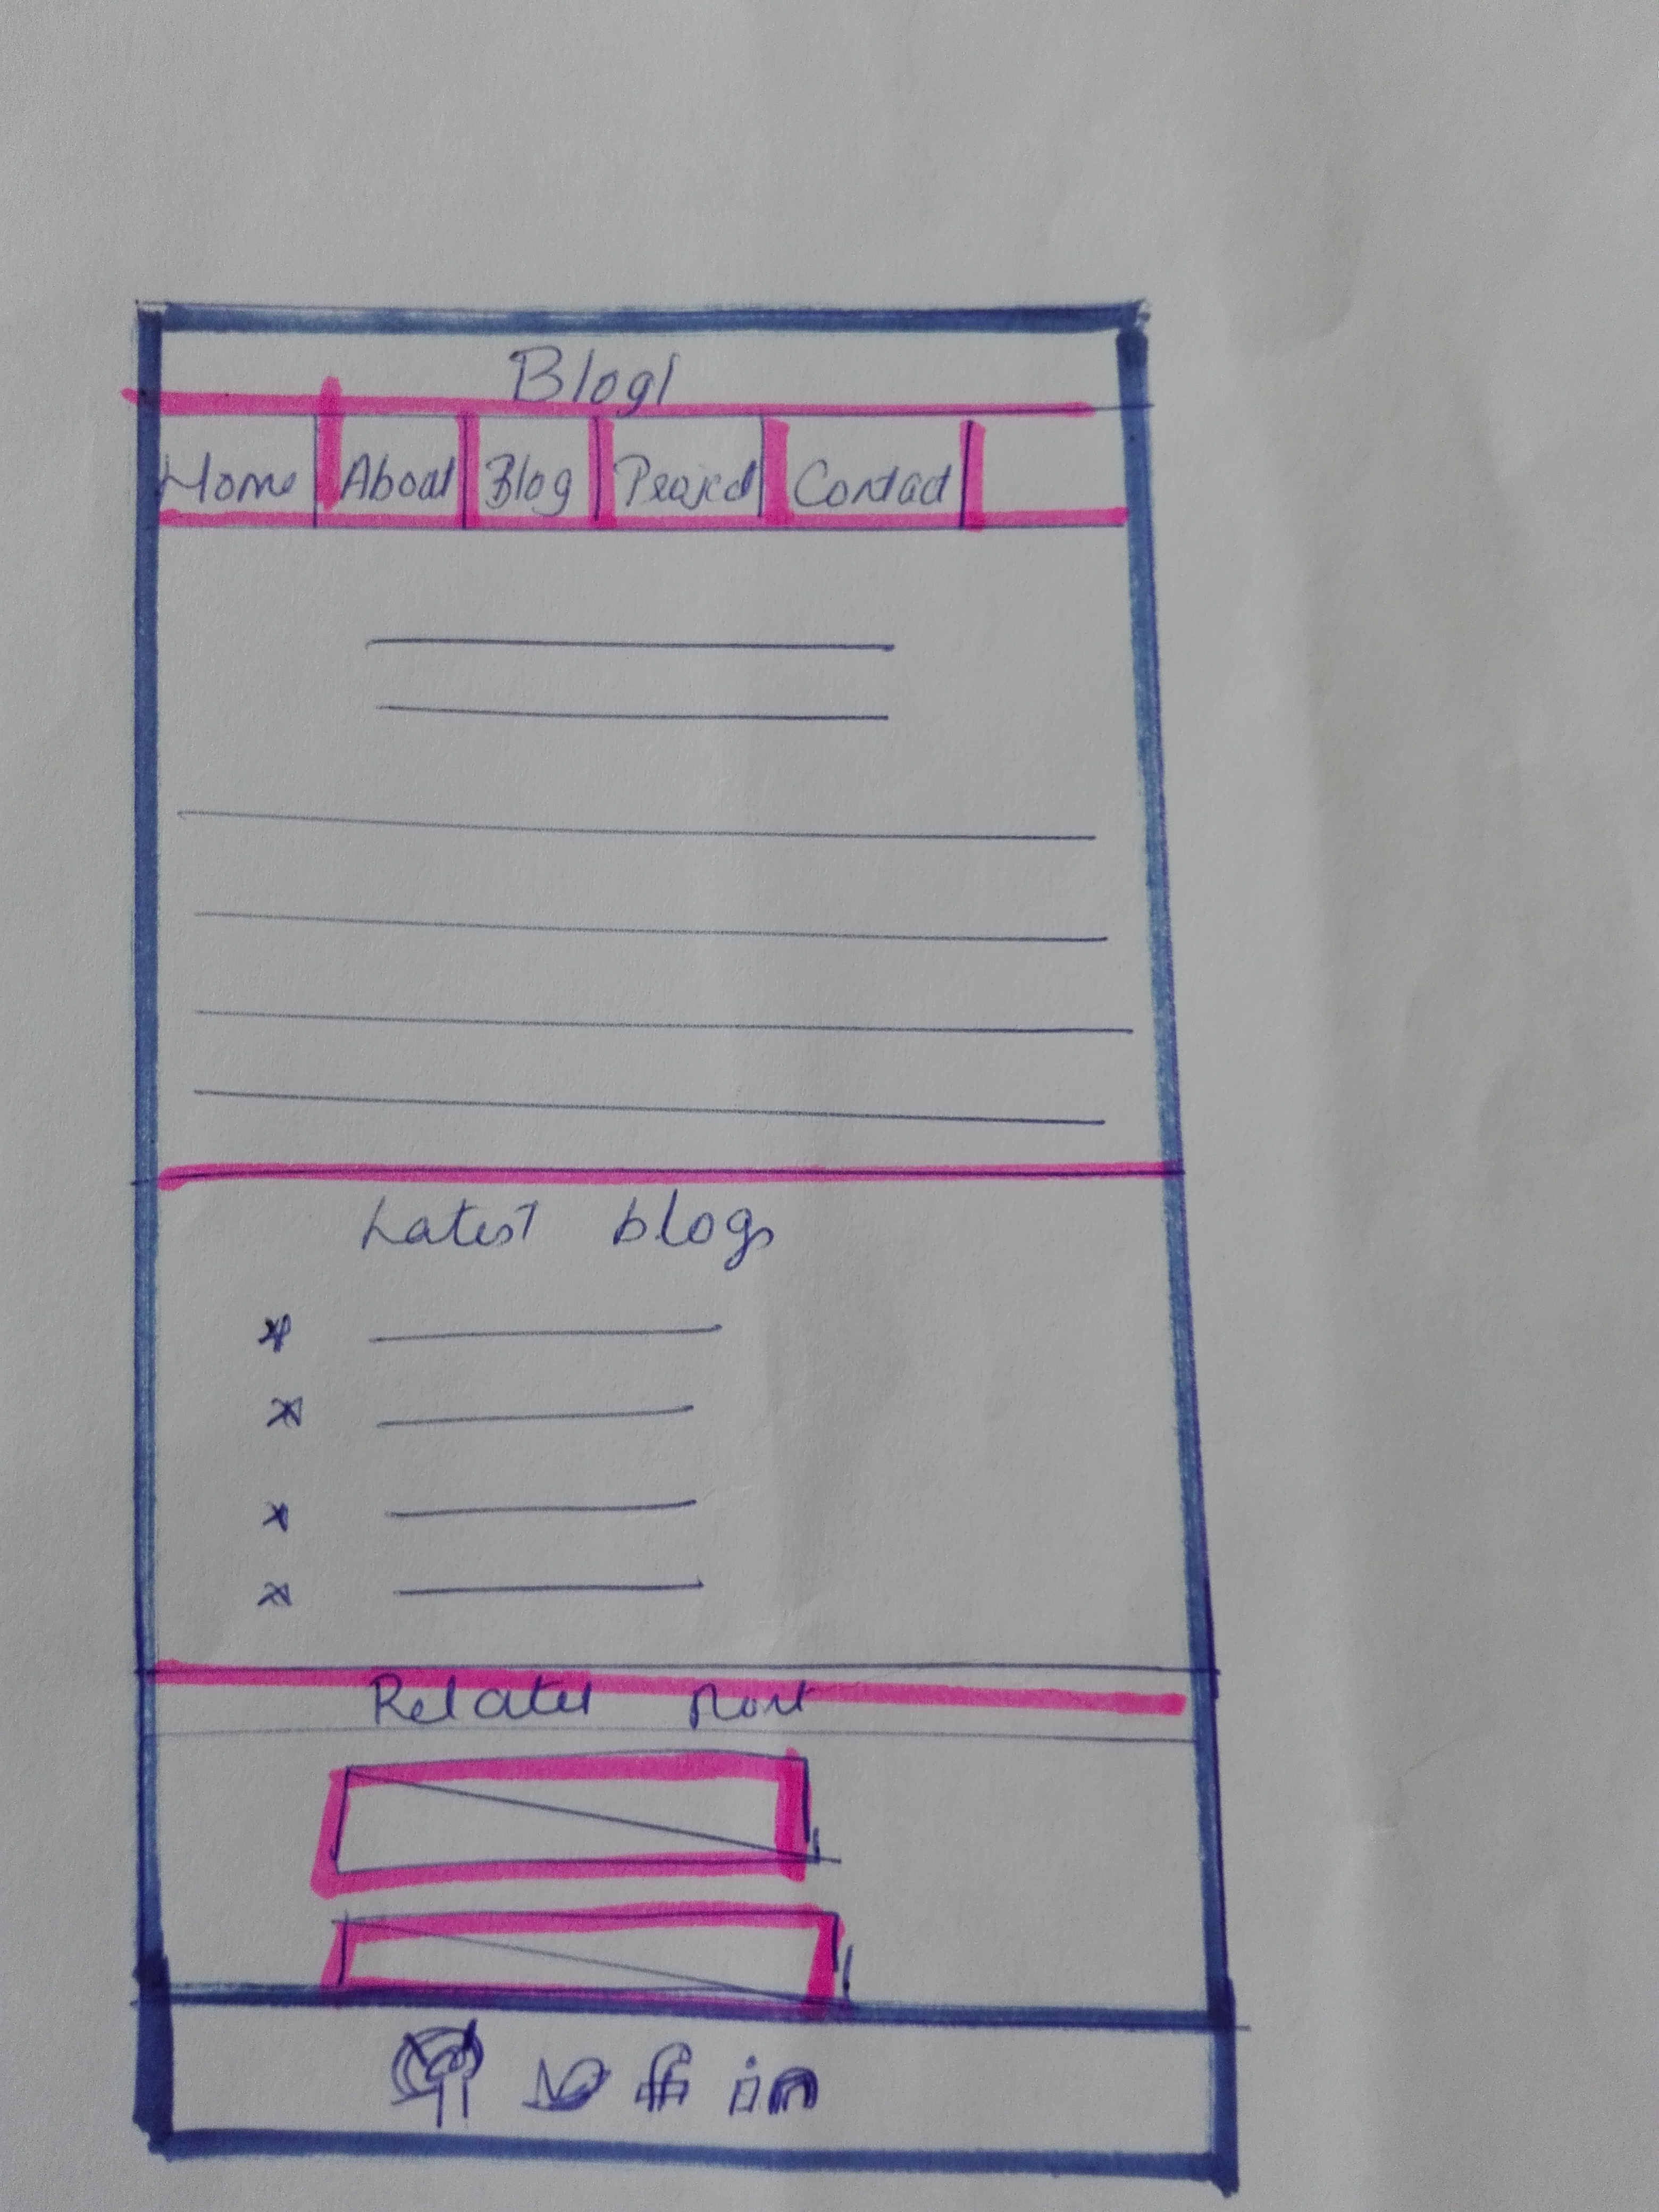 Blog1
Home About Blog Project Contact
Latest blogs
Related Post
in